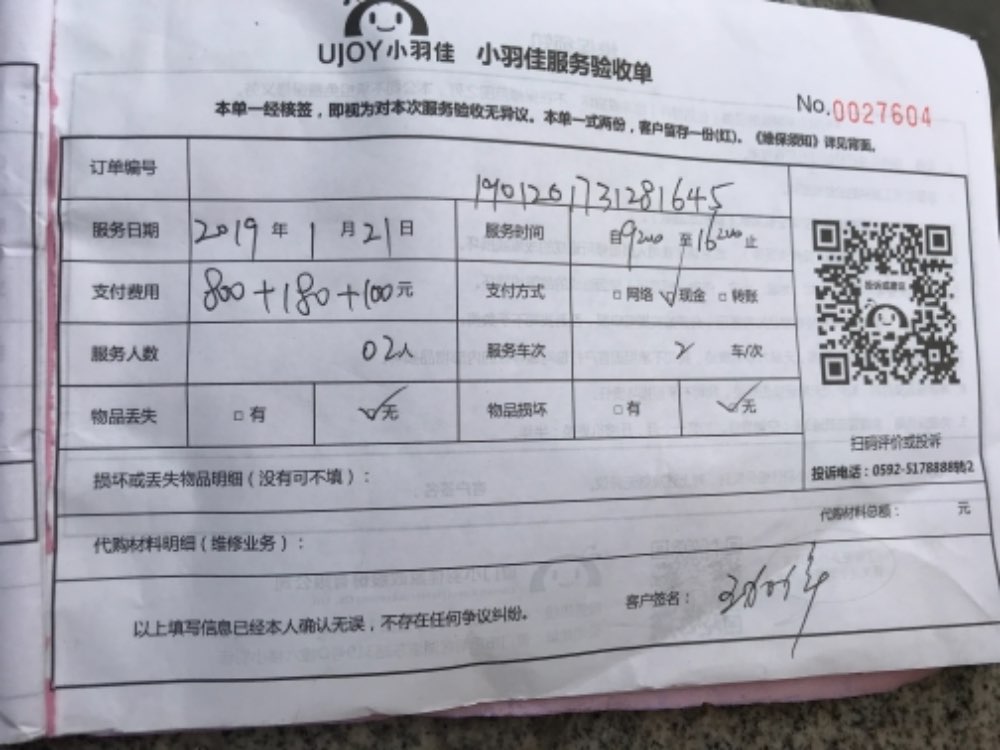 UJOY小羽佳 小羽佳服务验收单
No.0027604
本单一经核签，即视为对本次服务验收无异议。本单一式两份，客户留存一份(红)。《维保须知》详见背面。
订单编号 1901201731281645
服务日期 2019年1月21日 服务时间 自9:00至16:00止
支付费用 800+180+100元 支付方式 □网络 ☑现金 □转账
服务人数 02人 服务车次 2 车/次
物品丢失 □有 ☑无 物品损坏 □有 ☑无
投诉或建议
扫码评价或投诉
投诉电话：0592-5178888转2
损坏或丢失物品明细（没有可不填）：
代购材料明细（维修业务）： 代购材料总额： 元
以上填写信息已经本人确认无误，不存在任何争议纠纷。 客户签名：